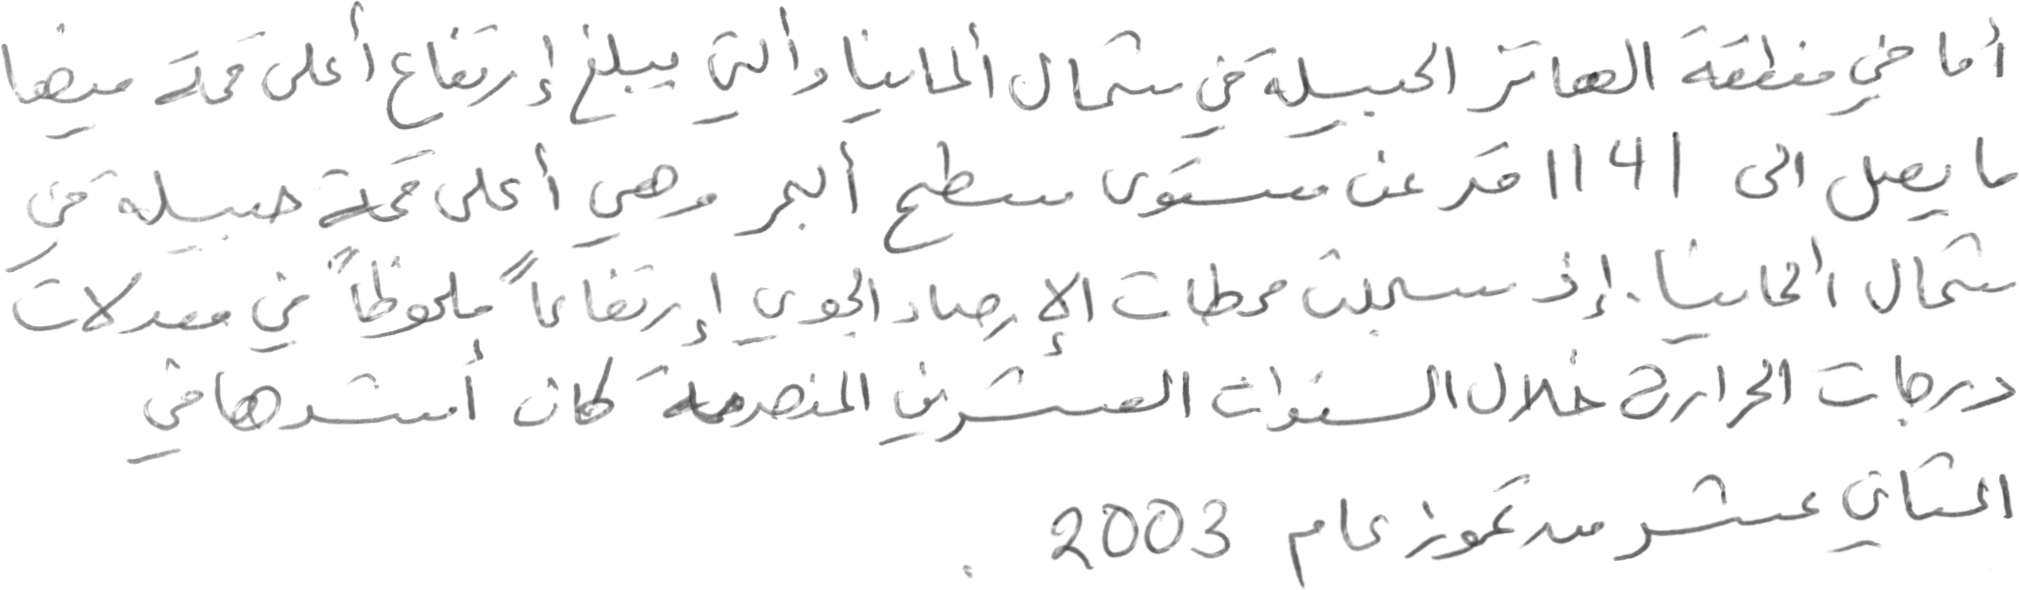 أما في منطقة الهاتز الجبيلة في شمال ألمانيا وألتي يبلغ إرتفاع أعلى قمة فيها
ما يصل الى 1141 متر عن مستوى سطح ألبحر وهي أعلى قمة جبيلة في
شمال ألمانيا. إذ سجلت محطات الإرصاد الجوي إرتفاعاً ملحوظاً في معدلات
درجات الحرارة خلال السنوات العشرين المنصرمة كان أشدها في
الثاني عشر من تموز عام 2003 .